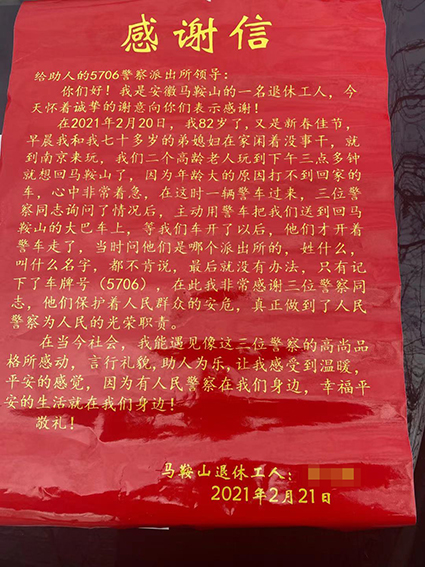 感谢信
给助人的5706警察派出所领导：
你们好！我是安徽马鞍山的一名退休工人，今
天怀着诚挚的谢意向你们表示感谢！
在2021年2月20日，我82岁了，又是新春佳节，
早晨我和我七十多岁的弟媳妇在家闲着没事干，就
到南京来玩，我们二个高龄老人玩到下午三点多钟
就想回马鞍山了，因为年龄大的原因打不到回家的
车，心中非常着急，在这时一辆警车过来，三位警
察同志询问了情况后，主动用警车把我们送到回马
鞍山的大巴车上，等我们车开了以后，他们才开着
警车走了，当时问他们是哪个派出所的，姓什么，
叫什么名字，都不肯说，最后就没有办法，只有记
下了车牌号（5706），在此我非常感谢三位警察同
志，他们保护着人民群众的安危，真正做到了人民
警察为人民的光荣职责。
在当今社会，我能遇见像这三位警察的高尚品
格所感动，言行礼貌，助人为乐，让我感受到温暖，
平安的感觉，因为有人民警察在我们身边，幸福平
安的生活就在我们身边！
敬礼！
马鞍山退休工人：
2021年2月21日